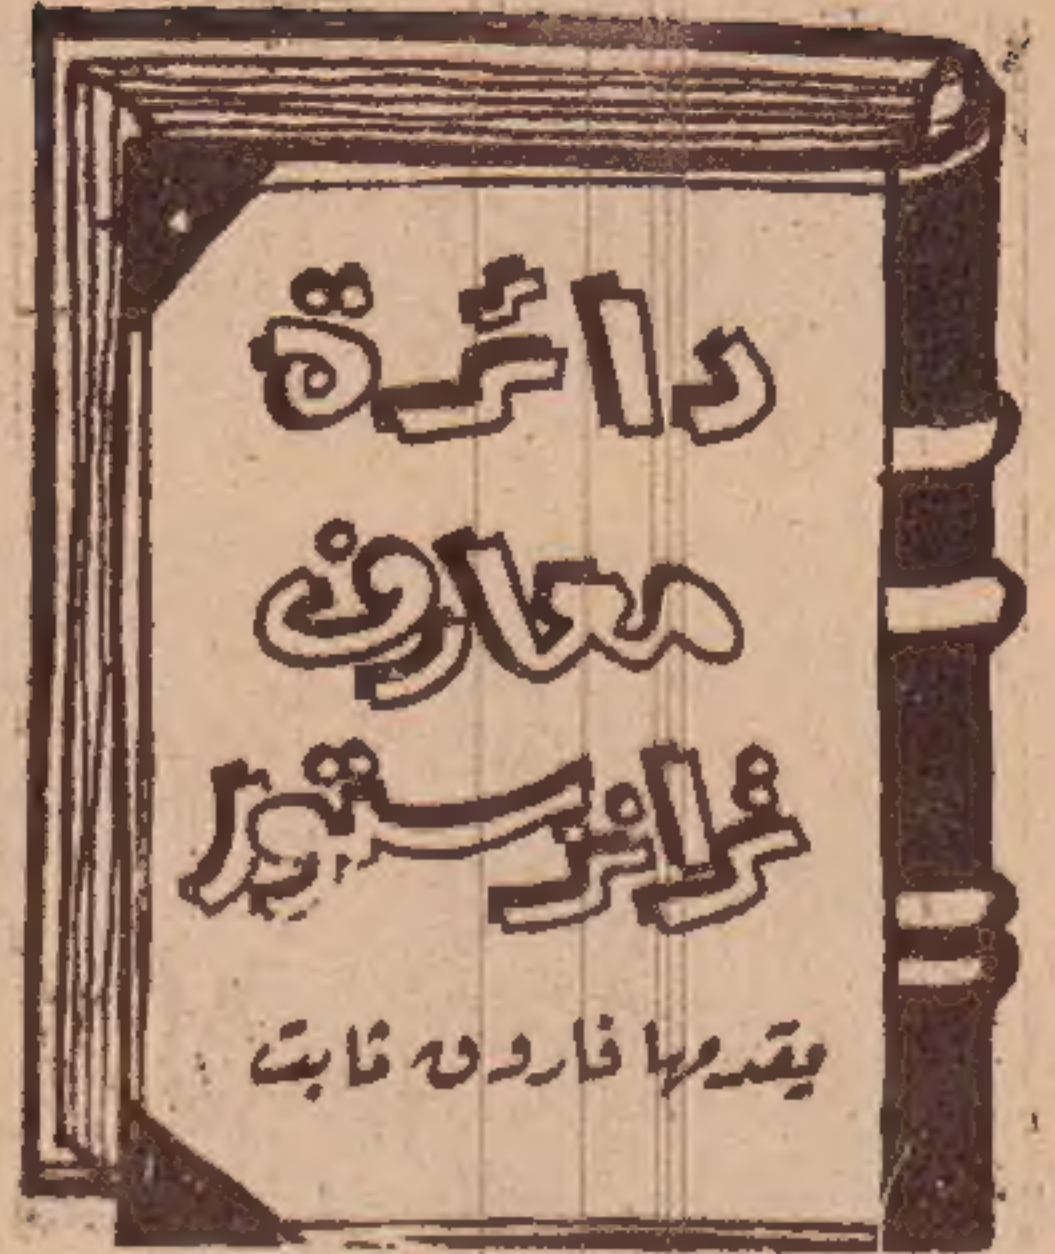 دائرة
معارف
ترانزستور
يقدمها فاروق ثابت